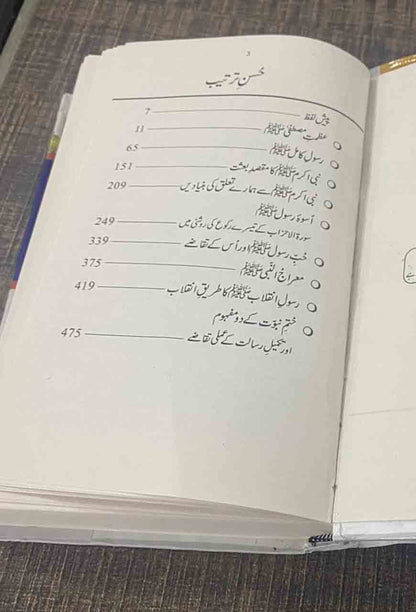 3
حُسنِ ترتیب
پیش لفظ 7
عظمتِ مصطفیٰ ﷺ 11
رسولِ کامل ﷺ 65
نبی اکرم ﷺ کا مقصدِ بعثت 151
نبی اکرم ﷺ سے ہمارے تعلق کی بنیادیں 209
اُسوۂ رسول ﷺ
سورۃ الاحزاب کے تیسرے رکوع کی روشنی میں 249
حُبِّ رسول ﷺ اور اُس کے تقاضے 339
معراجُ النَّبی ﷺ 375
رسولِ انقلاب ﷺ کا طریقِ انقلاب 419
ختمِ نبوت کے دو مفہوم
اور تکمیلِ رسالت کے عملی تقاضے 475